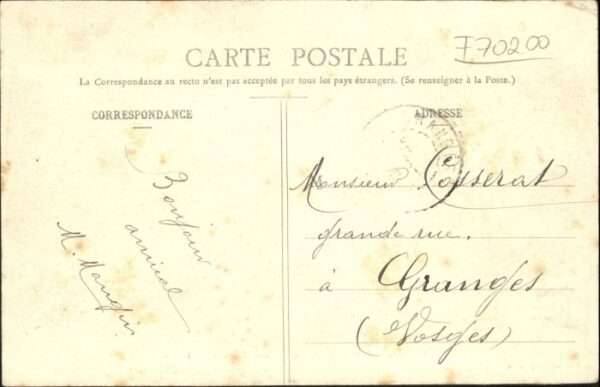 F70200
CARTE POSTALE
La Correspondance au recto n'est pas acceptée par tous les pays étrangers. (Se renseigner à la Poste.)
CORRESPONDANCE
ADRESSE
Bonjour
amical
M. Mangin
Monsieur Cosserat
grande rue.
à Granges
(Vosges)